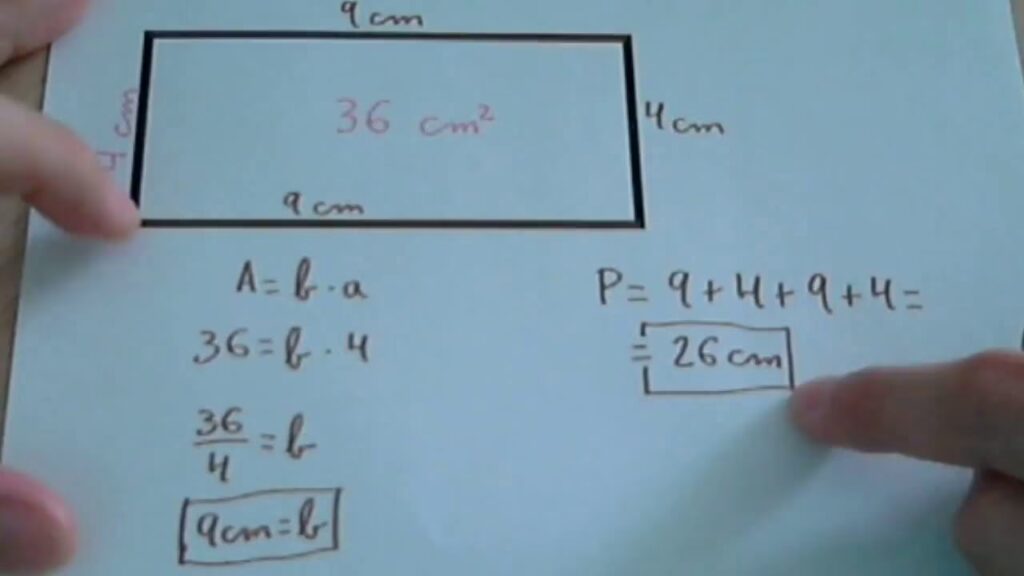 9 cm
4 cm
36 cm²
4 cm
9 cm
A = b · a
36 = b · 4
36/4 = b
9cm = b
P = 9 + 4 + 9 + 4 =
= 26 cm